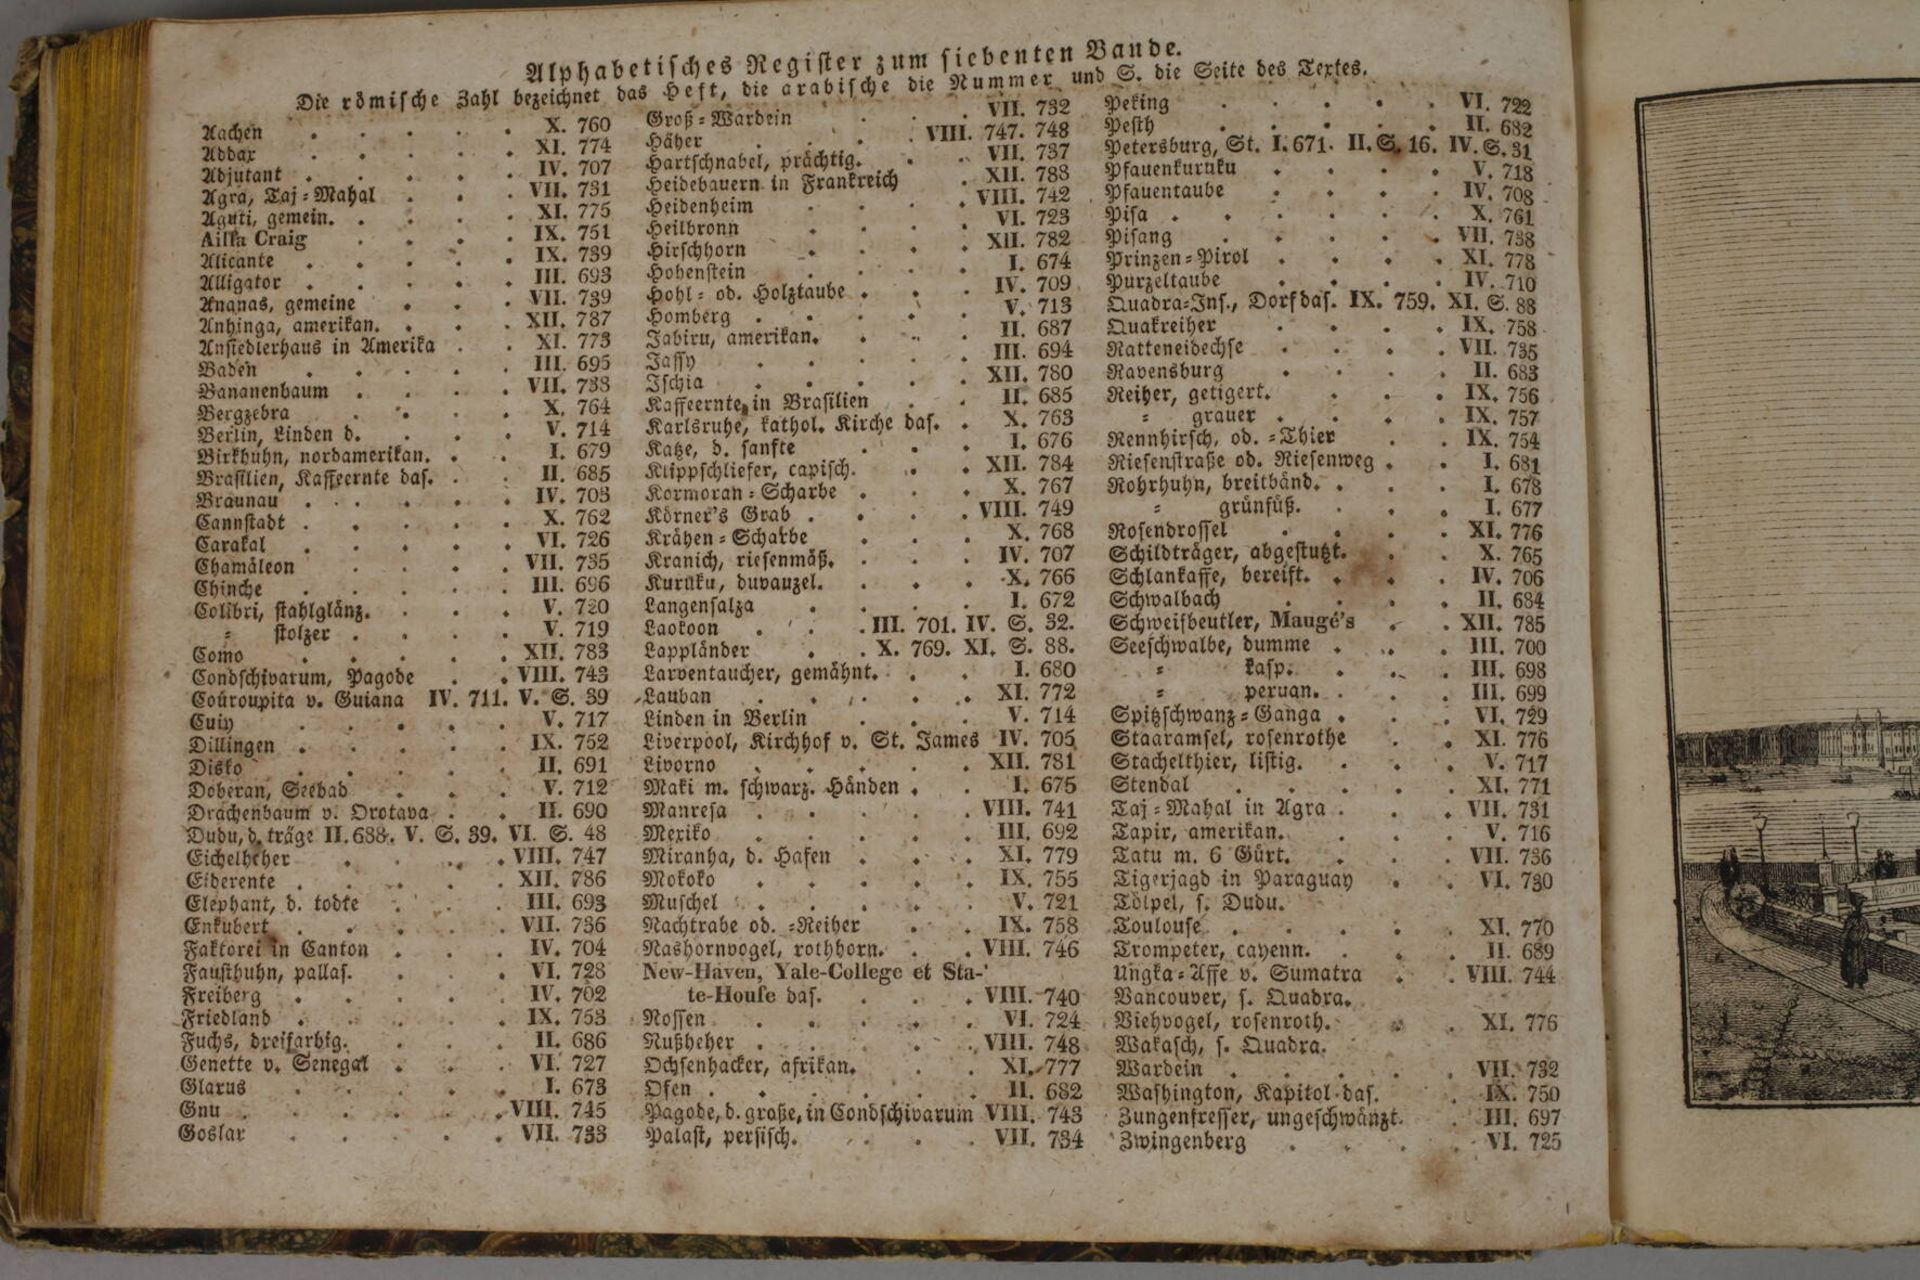 Alphabetisches Register zum siebenten Bande.
Die römische Zahl bezeichnet das Heft, die arabische die Nummer und S. die Seite des Textes.
Aachen . . . . . X. 760
Abdax . . . . . XI. 774
Adjutant . . . . . IV. 707
Agra, Taj-Mahal . . . VII. 731
Aguti, gemein. . . . . XI. 775
Ailsa Craig . . . . IX. 751
Alicante . . . . . IX. 739
Alligator . . . . . III. 693
Ananas, gemeine . . . VII. 739
Anhinga, amerikan. . . . XII. 787
Ansiedlerhaus in Amerika . . XI. 773
Baden . . . . . III. 695
Bananenbaum . . . . VII. 738
Bergzebra . . . . X. 764
Berlin, Linden d. . . . V. 714
Birkhuhn, nordamerikan. . . I. 679
Brasilien, Kaffeernte das. . . II. 685
Braunau . . . . . IV. 703
Cannstadt . . . . . X. 762
Carakal . . . . . VI. 726
Chamäleon . . . . VII. 735
Chinche . . . . . III. 696
Colibri, stahlglänz. . . . V. 720
= stolzer . . . . V. 719
Como . . . . . XII. 783
Condschivarum, Pagode . . VIII. 743
Couroupita v. Guiana IV. 711. V. S. 39
Cuiy . . . . . V. 717
Dillingen . . . . . IX. 752
Disko . . . . . II. 691
Doberan, Seebad . . . V. 712
Drachenbaum v. Orotava . . II. 690
Dudu, d. träge II. 688. V. S. 39. VI. S. 48
Eichelheher . . . . VIII. 747
Eiderente . . . . . XII. 786
Elephant, d. todte . . . III. 693
Enkubert . . . . . VII. 736
Faktorei in Canton . . . IV. 704
Fausthuhn, pallas. . . . VI. 728
Freiberg . . . . . IV. 702
Friedland . . . . . IX. 753
Fuchs, dreifarbig. . . . II. 686
Genette v. Senegal . . . VI. 727
Glarus . . . . . I. 673
Gnu . . . . . . VIII. 745
Goslar . . . . . VII. 733
Groß-Wardein . . . VII. 732
Häher . . . . VIII. 747. 748
Hartschnabel, prächtig. . . VII. 737
Heidebauern in Frankreich . XII. 788
Heidenheim . . . . VIII. 742
Heilbronn . . . . VI. 723
Hirschhorn . . . . XII. 782
Hohenstein . . . . I. 674
Hohl- od. Holztaube . . . IV. 709
Homberg . . . . . V. 713
Jabiru, amerikan. . . . II. 687
Jassy . . . . . III. 694
Ischia . . . . . XII. 780
Kaffeernte in Brasilien . . II. 685
Karlsruhe, kathol. Kirche das. . X. 763
Katze, d. sanfte . . . I. 676
Klippschliefer, capisch. . . XII. 784
Kormoran-Scharbe . . . X. 767
Körner's Grab . . . . VIII. 749
Krähen-Scharbe . . . X. 768
Kranich, riesenmäß. . . . IV. 707
Kuruku, duvauzel. . . . X. 766
Langensalza . . . . I. 672
Laokoon . . . III. 701. IV. S. 32.
Lappländer . . X. 769. XI. S. 88.
Larventaucher, gemähnt. . . I. 680
Lauban . . . . . XI. 772
Linden in Berlin . . . V. 714
Liverpool, Kirchhof v. St. James IV. 705
Livorno . . . . . XII. 781
Maki m. schwarz. Händen . . I. 675
Manresa . . . . . VIII. 741
Mexiko . . . . . III. 692
Miranha, d. Hafen . . . XI. 779
Mokoko . . . . . IX. 755
Muschel . . . . . V. 721
Nachtrabe od. =Reiher . . IX. 758
Nashornvogel, rothhorn. . . VIII. 746
New-Haven, Yale-College et Sta-
te-House das. . . . VIII. 740
Nossen . . . . . VI. 724
Nußheher . . . . . VIII. 748
Ochsenhacker, afrikan. . . XI. 777
Ofen . . . . . . II. 682
Pagode, d. große, in Condschivarum VIII. 743
Palast, persisch. . . . VII. 734
Peking . . . . . VI. 722
Pesth . . . . . II. 682
Petersburg, St. I. 671. II. S. 16. IV. S. 31
Pfauenkuruku . . . . V. 718
Pfauentaube . . . . IV. 708
Pisa . . . . . . X. 761
Pisang . . . . . VII. 738
Prinzen-Pirol . . . . XI. 778
Purzeltaube . . . . IV. 710
Quadra-Ins., Dorf das. IX. 759. XI. S. 88
Quakreiher . . . . IX. 758
Ratteneidechse . . . . VII. 735
Ravensburg . . . . II. 683
Reiher, getigert. . . . IX. 756
= grauer . . . . IX. 757
Rennhirsch, od. =Thier . . IX. 754
Riesenstraße od. Riesenweg . . I. 681
Rohrhuhn, breitbänd. . . . I. 678
= grünfüß. . . . I. 677
Rosendrossel . . . . XI. 776
Schildträger, abgestutzt. . . X. 765
Schlankaffe, bereift. . . . IV. 706
Schwalbach . . . . II. 684
Schweifbeutler, Maugé's . . XII. 785
Seeschwalbe, dumme . . . III. 700
= kasp. . . . III. 698
= peruan. . . . III. 699
Spitzschwanz-Ganga . . . VI. 729
Staaramsel, rosenrothe . . XI. 776
Stachelthier, listig. . . . V. 717
Stendal . . . . . XI. 771
Taj-Mahal in Agra . . . VII. 731
Tapir, amerikan. . . . V. 716
Tatu m. 6 Gürt. . . . VII. 736
Tigerjagd in Paraguay . . VI. 730
Tölpel, s. Dudu.
Toulouse . . . . . XI. 770
Trompeter, cayenn. . . . II. 689
Ungka-Affe v. Sumatra . . VIII. 744
Vancouver, s. Quadra.
Viehvogel, rosenroth. . . XI. 776
Wakasch, s. Quadra.
Wardein . . . . . VII. 732
Washington, Kapitol das. . IX. 750
Zungenfresser, ungeschwänzt. . III. 697
Zwingenberg . . . . VI. 725